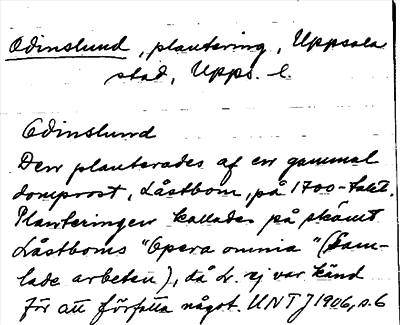 Odinslund, plantering, Uppsala
stad, Upps. l.
Odinslund
Den planterades af en gammal
domprost, Låstbom, på 1700-talet.
Planteringen kallades på skämt
Låstboms "Opera omnia" (Sam-
lade arbeten), då L. ej var känd
för att författa något. UNT J 1906, s. 6